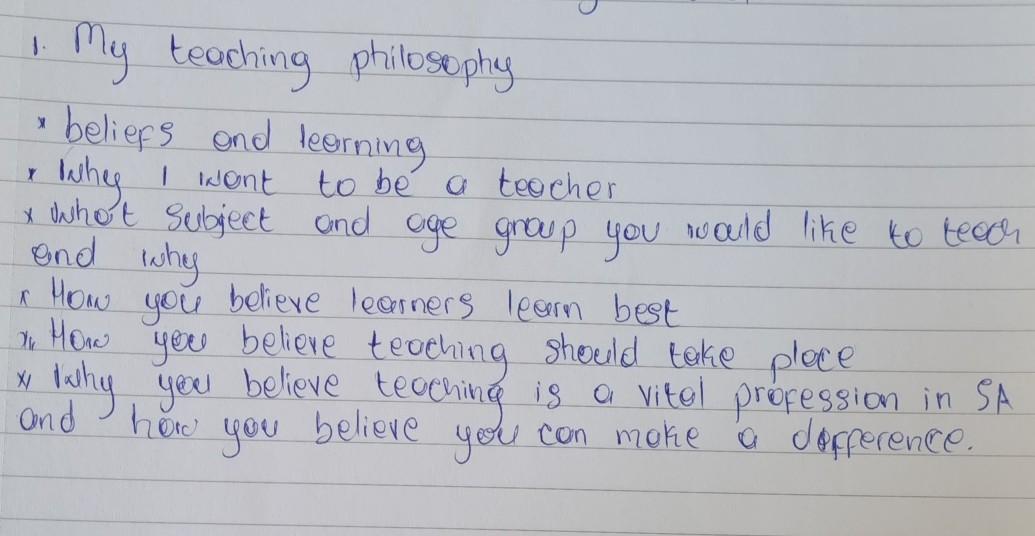 1. My teaching philosophy
* beliefs and learning
* Why I want to be a teacher
* What subject and age group you would like to teach
and why
* How you believe learners learn best
* How you believe teaching should take place
* Why you believe teaching is a vital profession in SA
and how you believe you can make a dofference.